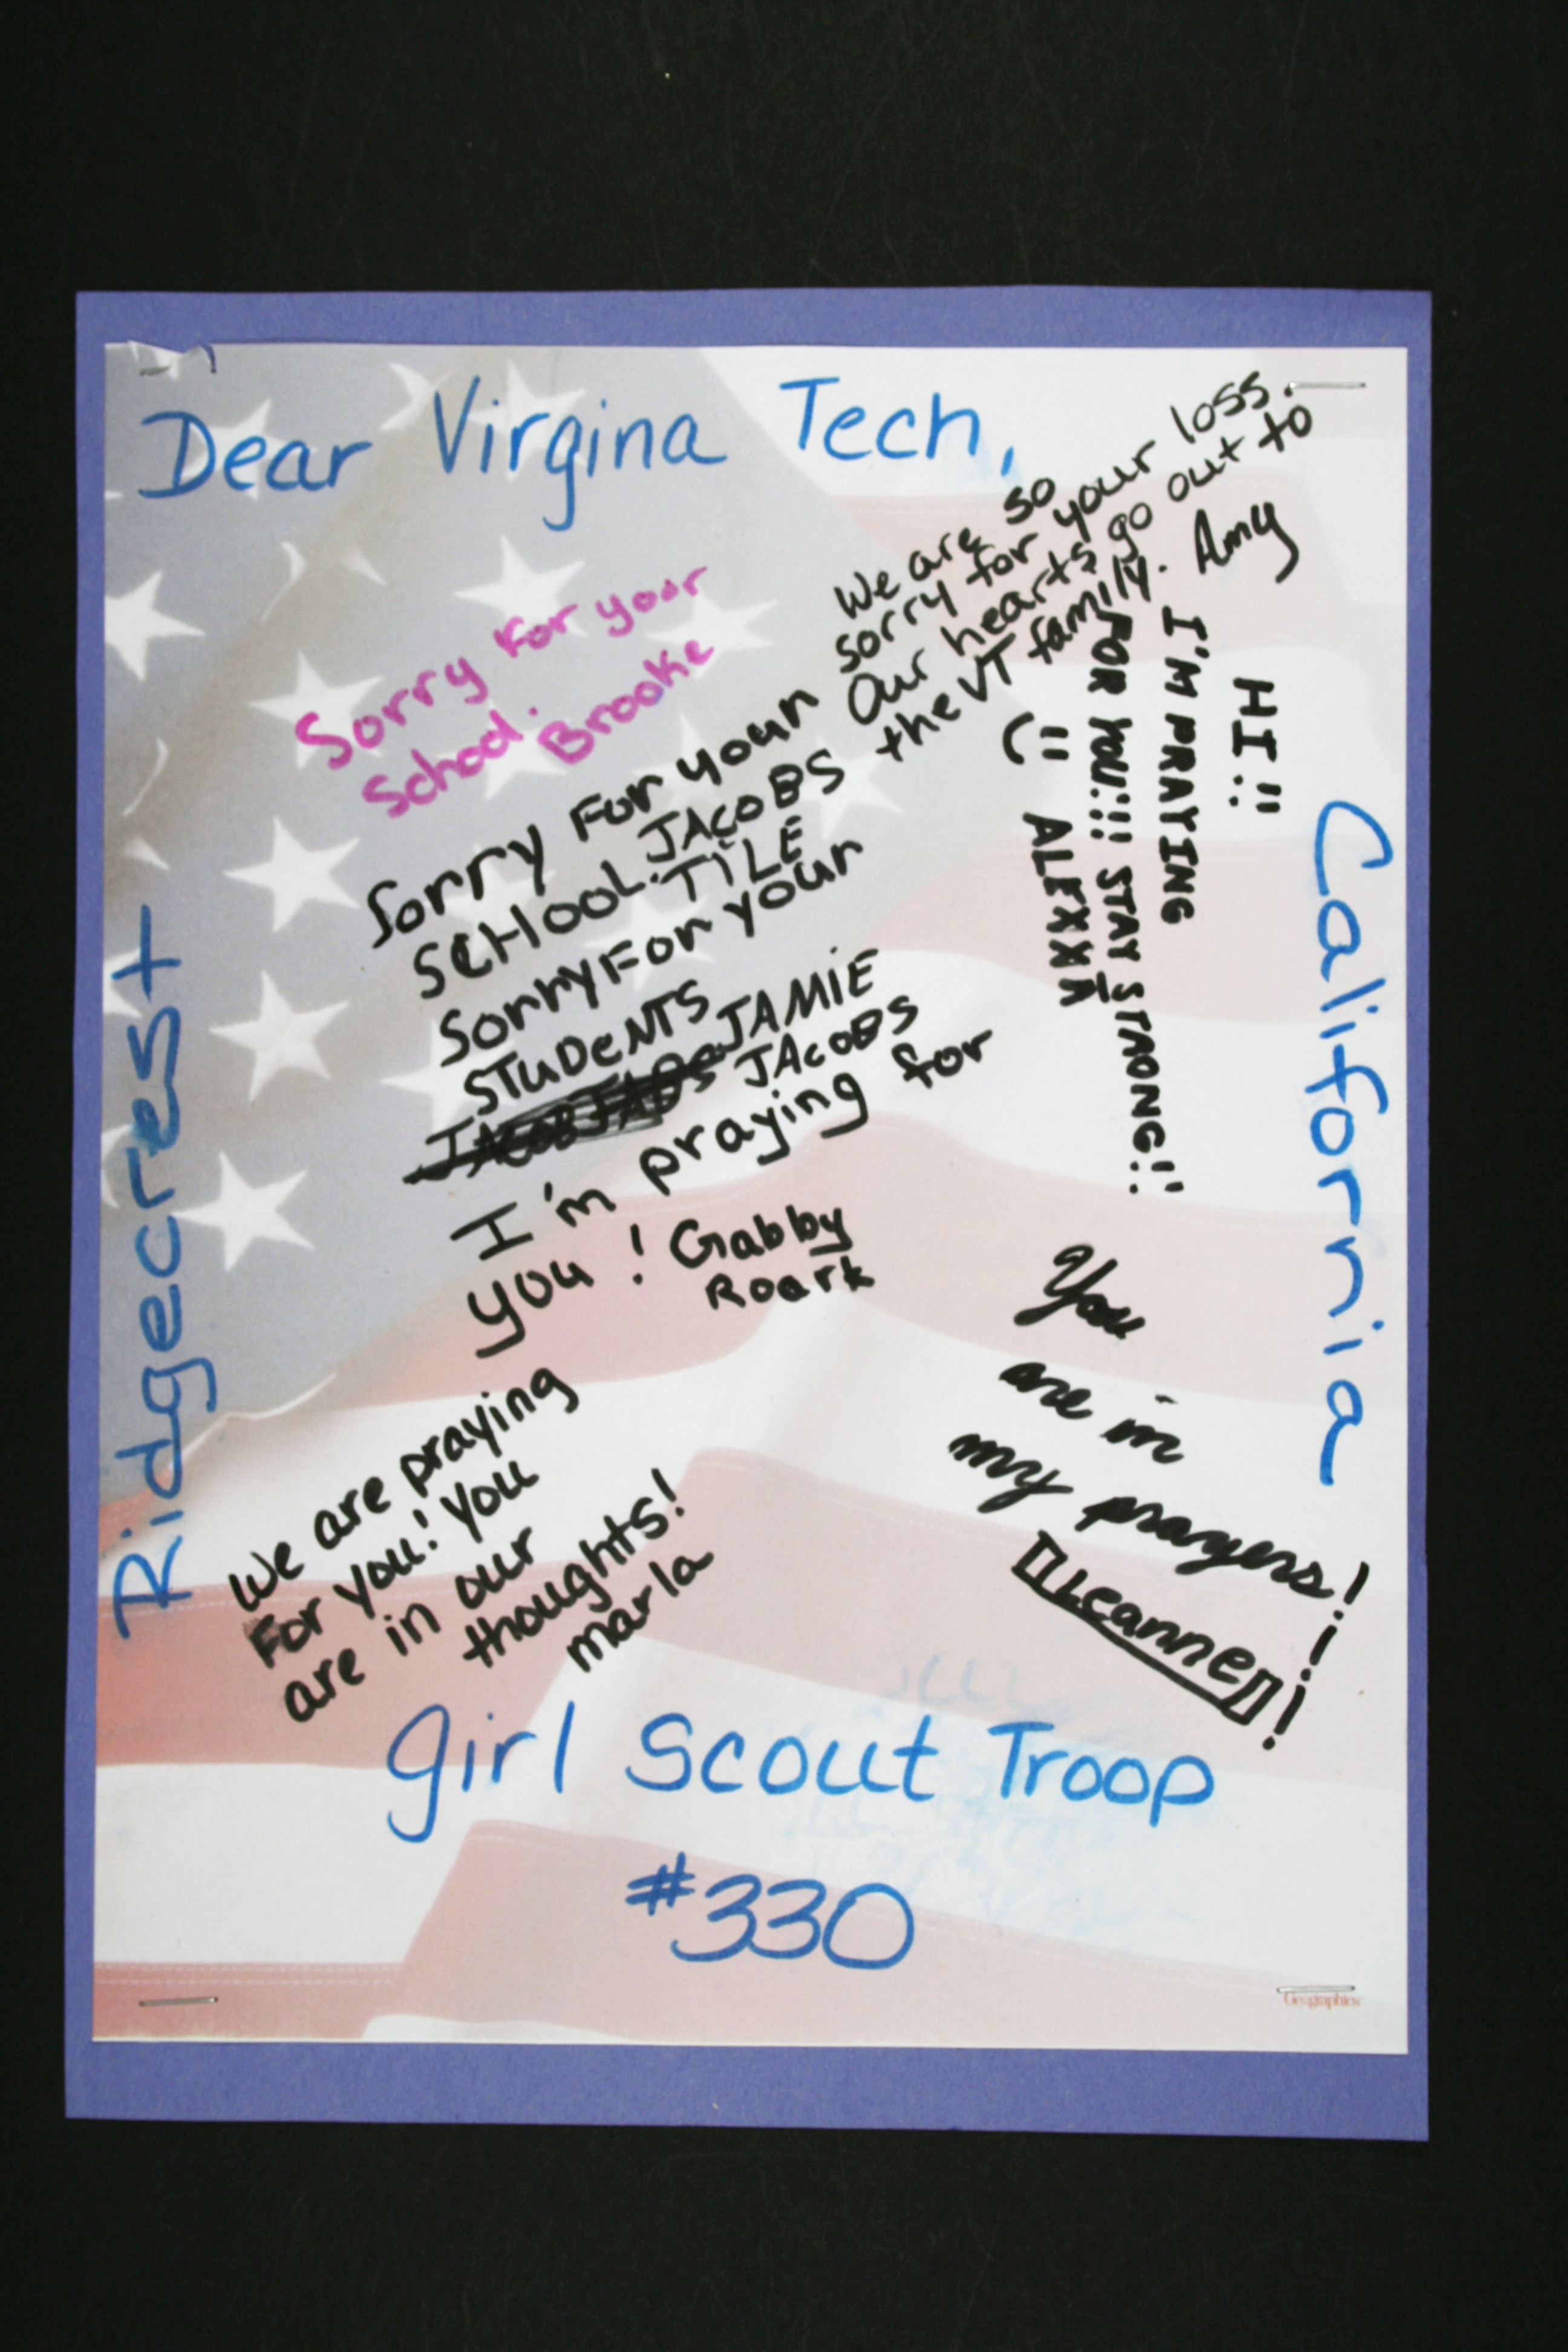 Dear Virgina Tech,
Sorry For your
School. Brooke
We are so
sorry for your loss.
Our hearts go out to
the VT family. Amy
HI!!
I'M PRAYING
FOR YOU!!! STAY STRONG!!
ALEXXA
Sorry For your
SCHOOL. JACOBS
TILE
Sorry For your
STUDENTS
JAMIE
JACOBS
I'm praying for
you! Gabby
Roark
You
are in
my prayers!
Leanne!!
We are praying
For you! You
are in our
thoughts!
marla
Ridgecrest
California
Girl Scout Troop
#330
Geographics